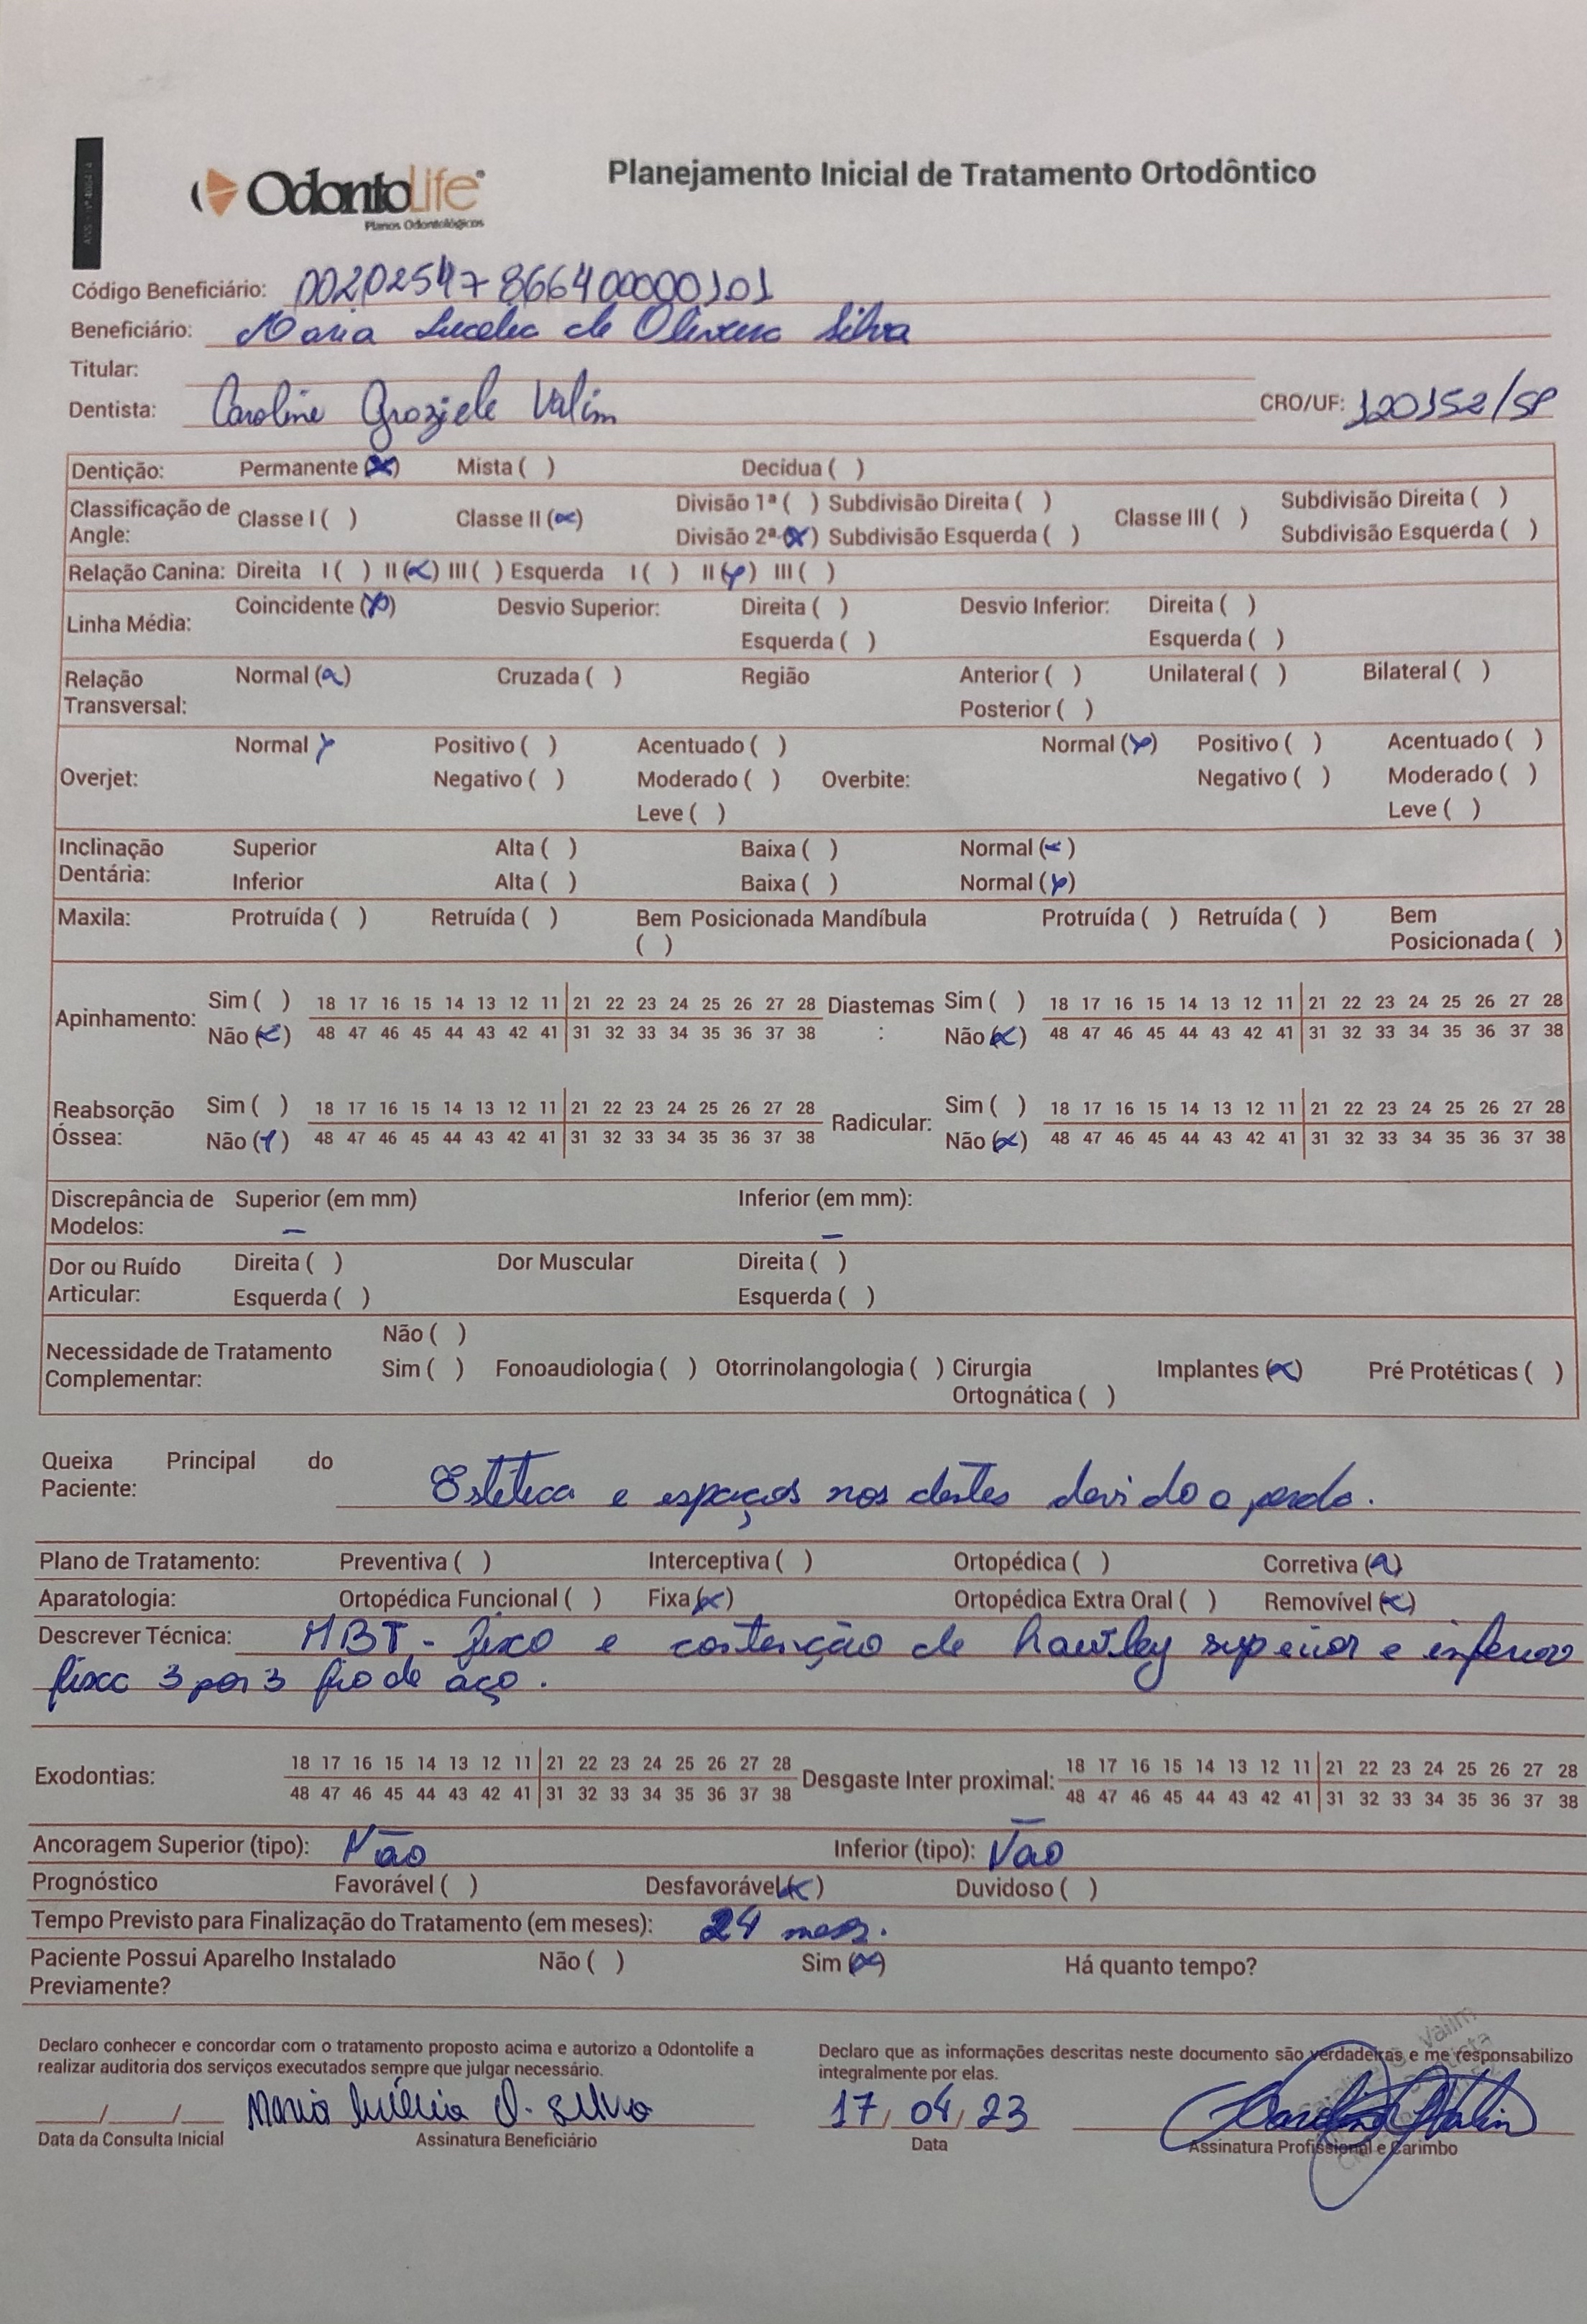 OdontoLife
Planos Odontológicos
Planejamento Inicial de Tratamento Ortodôntico
Código Beneficiário: 00202547866400000101
Beneficiário: Maria de Oliveira Silva
Titular:
Dentista: Caroline Graziele Valim CRO/UF: 120152/SP
Dentição: Permanente (x) Mista ( ) Decídua ( )
Classificação de Angle: Classe I ( ) Classe II (x) Divisão 1ª ( ) Subdivisão Direita ( ) Classe III ( ) Subdivisão Direita ( )
Divisão 2ª (x) Subdivisão Esquerda ( ) Subdivisão Esquerda ( )
Relação Canina: Direita I ( ) II (x) III ( ) Esquerda I ( ) II (x) III ( )
Linha Média: Coincidente (x) Desvio Superior: Direita ( ) Desvio Inferior: Direita ( )
Esquerda ( ) Esquerda ( )
Relação Transversal: Normal (x) Cruzada ( ) Região Anterior ( ) Unilateral ( ) Bilateral ( )
Posterior ( )
Overjet: Normal x Positivo ( ) Acentuado ( ) Overbite: Normal (x) Positivo ( ) Acentuado ( )
Negativo ( ) Moderado ( ) Negativo ( ) Moderado ( )
Leve ( ) Leve ( )
Inclinação Dentária: Superior Alta ( ) Baixa ( ) Normal (x)
Inferior Alta ( ) Baixa ( ) Normal (x)
Maxila: Protruída ( ) Retruída ( ) Bem Posicionada ( ) Mandíbula Protruída ( ) Retruída ( ) Bem Posicionada ( )
Apinhamento: Sim ( ) 18 17 16 15 14 13 12 11 21 22 23 24 25 26 27 28 Diastemas : Sim ( ) 18 17 16 15 14 13 12 11 21 22 23 24 25 26 27 28
Não (x) 48 47 46 45 44 43 42 41 31 32 33 34 35 36 37 38 Não (x) 48 47 46 45 44 43 42 41 31 32 33 34 35 36 37 38
Reabsorção Óssea: Sim ( ) 18 17 16 15 14 13 12 11 21 22 23 24 25 26 27 28 Radicular: Sim ( ) 18 17 16 15 14 13 12 11 21 22 23 24 25 26 27 28
Não (x) 48 47 46 45 44 43 42 41 31 32 33 34 35 36 37 38 Não (x) 48 47 46 45 44 43 42 41 31 32 33 34 35 36 37 38
Discrepância de Modelos: Superior (em mm) – Inferior (em mm): –
Dor ou Ruído Articular: Direita ( ) Dor Muscular Direita ( )
Esquerda ( ) Esquerda ( )
Necessidade de Tratamento Complementar: Não ( )
Sim ( ) Fonoaudiologia ( ) Otorrinolangologia ( ) Cirurgia Ortognática ( ) Implantes (x) Pré Protéticas ( )
Queixa Principal do Paciente: Estética e espaços nos dentes devido a perda.
Plano de Tratamento: Preventiva ( ) Interceptiva ( ) Ortopédica ( ) Corretiva (x)
Aparatologia: Ortopédica Funcional ( ) Fixa (x) Ortopédica Extra Oral ( ) Removível (x)
Descrever Técnica: MBT - fixo e contenção de hawley superior e inferior
fixa 3 por 3 fio de aço.
Exodontias: 18 17 16 15 14 13 12 11 21 22 23 24 25 26 27 28 Desgaste Inter proximal: 18 17 16 15 14 13 12 11 21 22 23 24 25 26 27 28
48 47 46 45 44 43 42 41 31 32 33 34 35 36 37 38 48 47 46 45 44 43 42 41 31 32 33 34 35 36 37 38
Ancoragem Superior (tipo): Não Inferior (tipo): Não
Prognóstico Favorável ( ) Desfavorável (x) Duvidoso ( )
Tempo Previsto para Finalização do Tratamento (em meses): 24 meses.
Paciente Possui Aparelho Instalado Previamente? Não ( ) Sim (x) Há quanto tempo?
Declaro conhecer e concordar com o tratamento proposto acima e autorizo a Odontolife a
realizar auditoria dos serviços executados sempre que julgar necessário.
Declaro que as informações descritas neste documento são verdadeiras e me responsabilizo
integralmente por elas.
__/__/__ Maria O. Silva 17/04/23
Data da Consulta Inicial Assinatura Beneficiário Data Assinatura Profissional e Carimbo